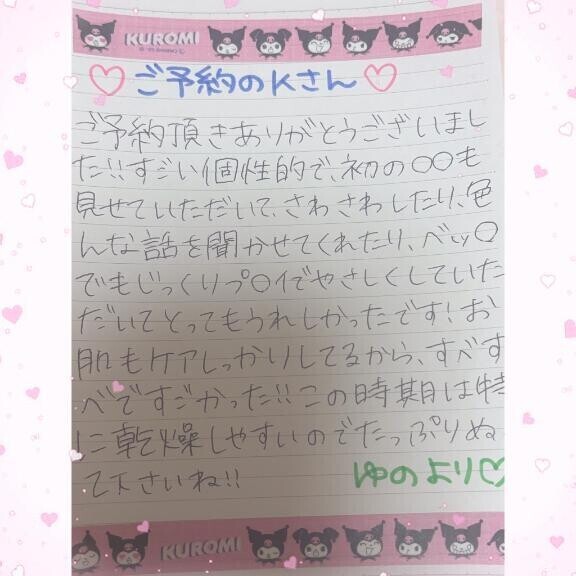 KUROMI
♡ご予約のKさん♡
ご予約頂きありがとうございまし
た!!すごい個性的で、初の〇〇も
見せていただいて、さわさわしたり、色
んな話を聞かせてくれたり、ベッ〇
でもじっくりプ〇イでやさしくしていた
だいてとってもうれしかったです!お
肌もケアしっかりしてるから、すべす
べですごかった!!この時期は特
に乾燥しやすいのでたっぷりぬっ
て下さいね!!
ゆのより♡
KUROMI